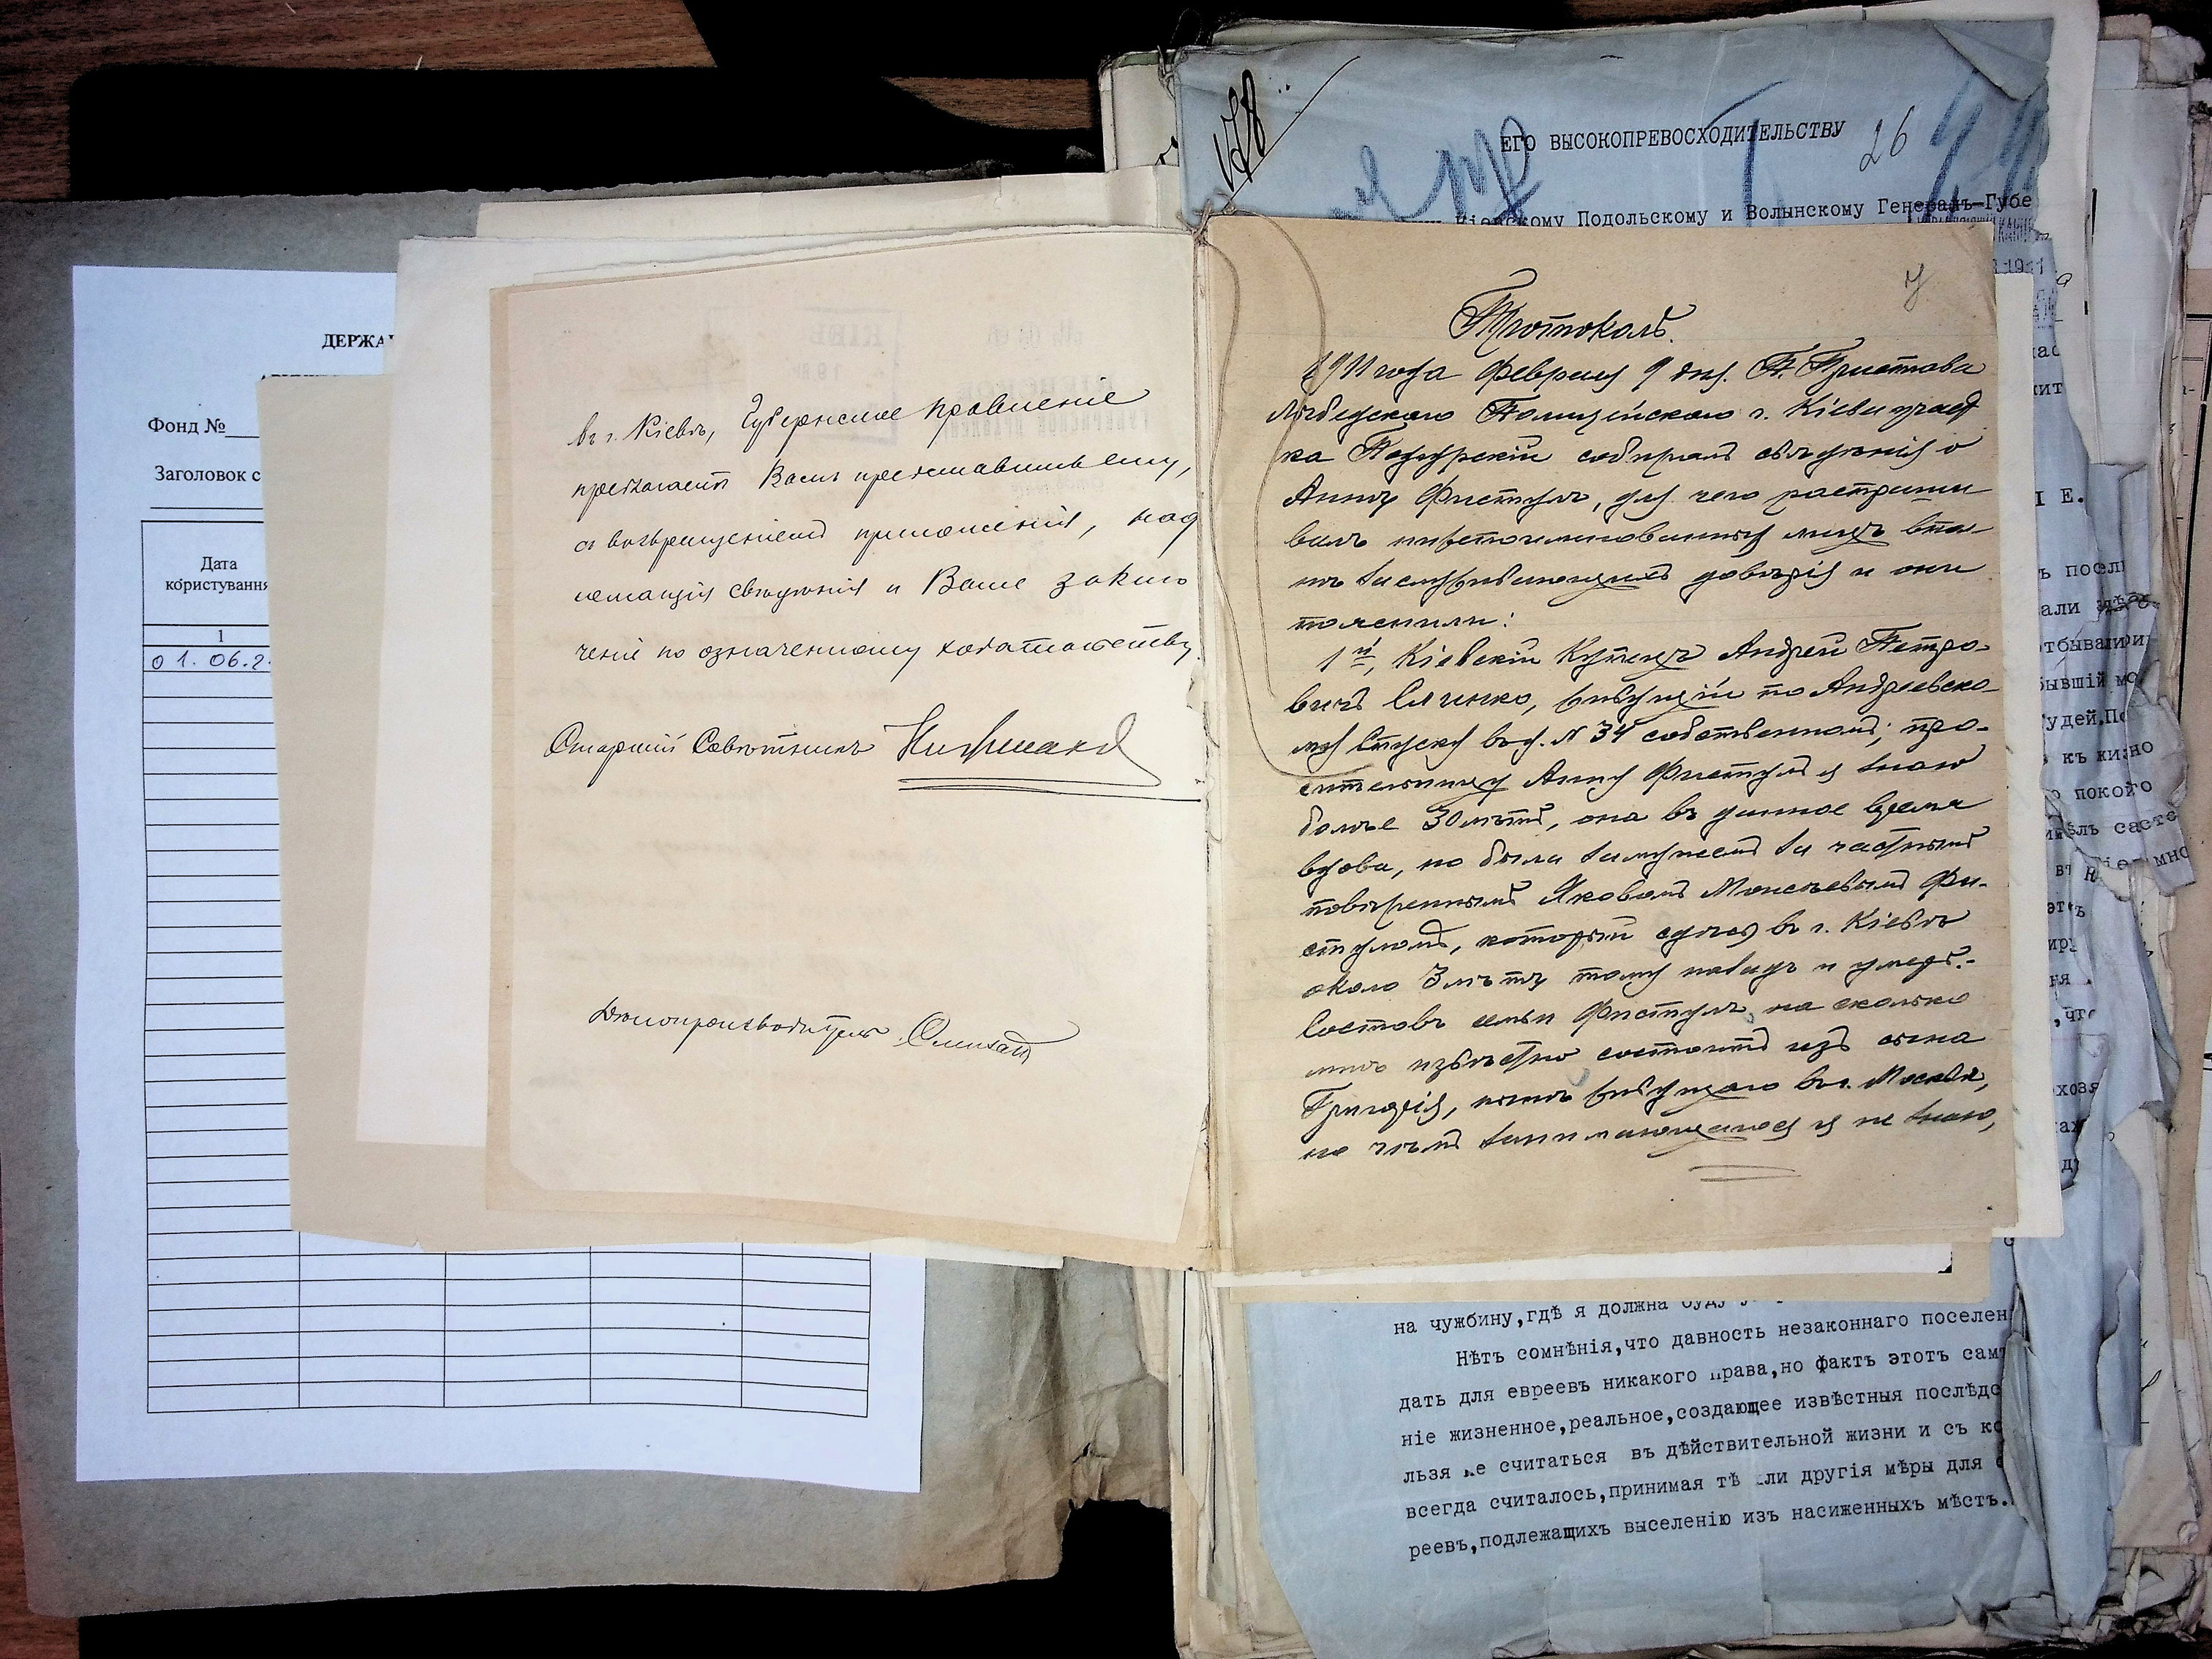 ДЕРЖА
Фонд №
Заголовок с
Дата
користування
1
01. 06.2
въ г. Кіевѣ, Губернское Правленіе
предлагаетъ Вамъ представить ему,
съ возвращеніемъ приложенія, над
лежащія свѣдѣнія и Ваше заклю
ченіе по означенному ходатайству.
Старшій Совѣтникъ
Дѣлопроизводитель
178
ЕГО ВЫСОКОПРЕВОСХОДИТЕЛЬСТВУ
26
Кіевскому Подольскому и Волынскому Генералъ-Губе
7
Протоколъ.
1911 года Февраля 9 дня. П. Пристава
Лыбедскаго Полицейскаго г. Кіева участ
ка собиралъ свѣдѣнія о
Аннѣ Фистулъ, для чего разспраши
валъ нижепоименованныхъ лицъ впол-
нѣ заслуживающихъ довѣрія и они
пояснили:
1й, Кіевскій Купецъ Андрей Петро-
вичъ Слинко, живущій по Андреевско
му Спуску въ д. N 34 собственномъ; про-
сительницу Анну Фистулъ я знаю
болѣе 30 лѣтъ, она въ данное время
вдова, но была замужемъ за частнымъ
повѣреннымъ Яковомъ Моисеевымъ Фи-
стуломъ, который здѣсь въ г. Кіевѣ
около 3 лѣтъ тому назадъ и умеръ.-
Составъ семьи Фистулъ, на сколько
мнѣ извѣстно состоитъ изъ сына
Григорія, нынѣ живущаго въ г. Москвѣ,
но чѣмъ занимающагося я не знаю,
на чужбину,гдѣ я должна буду
Нѣтъ сомнѣнія,что давность незаконнаго поселен
дать для евреевъ никакого права,но фактъ этотъ самъ
ніе жизненное,реальное,создающее извѣстныя послѣдс
льзя не считаться въ дѣйствительной жизни и съ ко
всегда считалось,принимая тѣ или другія мѣры для
реевъ,подлежащихъ выселенію изъ насиженныхъ мѣстъ.